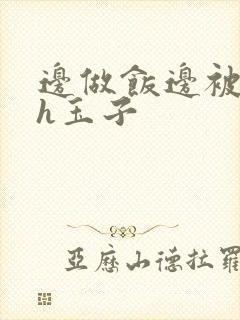 邊做飯邊被
h玉子
亞歷山德拉羅